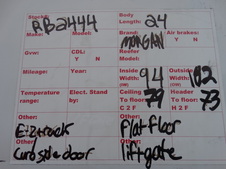 Stock#: BB2444 Body Length: 24
Make: Model: Brand: MORGAN Air brakes: Y N
Gvw: CDL: Y N Reefer Model:
Mileage: Year: Inside Width: 94 Outside Width: 102
Temperature range: Elect. Stand by: Ceiling To floor: C 2 F 79 Header To floor: H 2 F 73
Other: E-track Other: flat floor
Other: Curbside door Other: liftgate